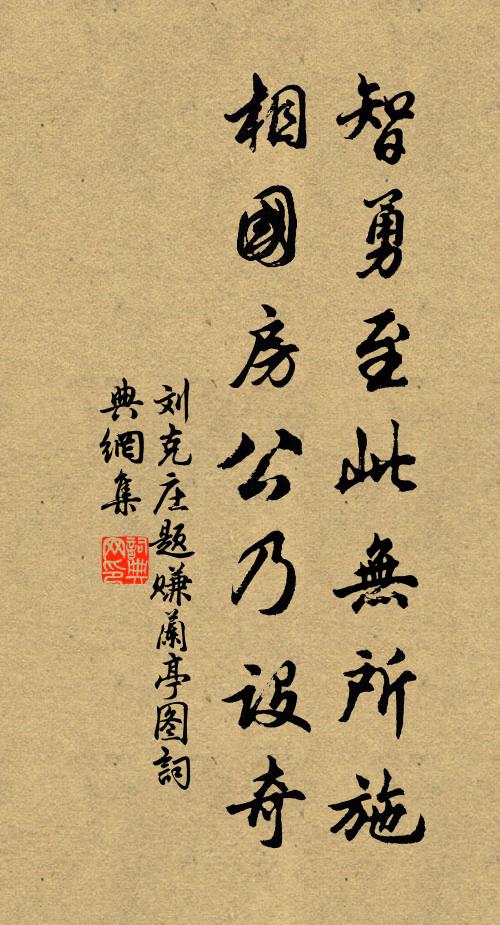 智勇至此無所施
相國房公乃設奇
刘克庄题赚蘭亭图詞
典網集
詞典網印